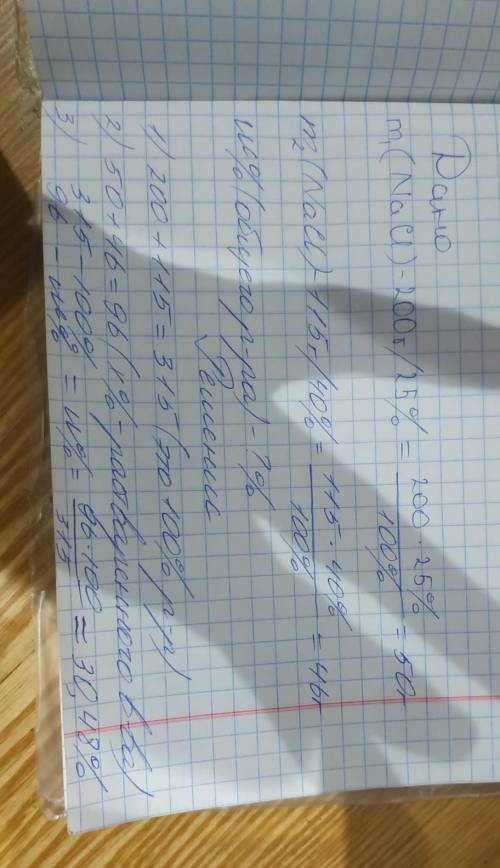 Дано
m₁(NaCl) - 200г/25% = 200 · 25% / 100% = 50г
m₂(NaCl) - 115г/40% = 115 · 40% / 100% = 46г
w%(общего р-ра) - ?%
Решение
1) 200 + 115 = 315 (это 100% р-р)
2) 50 + 46 = 96 (x%-растворенного в-ва)
3) 315 - 100%
96 - w% = w% = 96·100 / 315 ≈ 30,48%